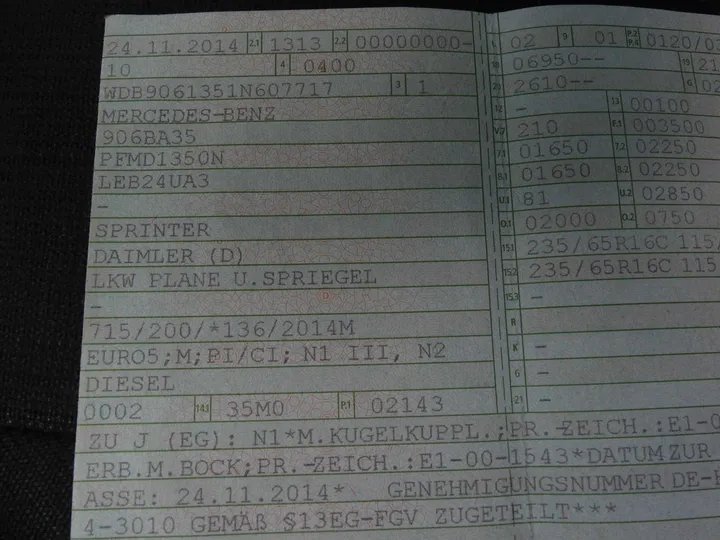 24.11.2014 2.1 1313 2.2 00000000-
10 4 0400
WDB9061351N607717 3 1
MERCEDES-BENZ
906BA35
PFMDI350N
LEB24UA3
-
SPRINTER
DAIMLER (D)
LKW PLANE U.SPRIEGEL
-
715/200/*136/2014M
EURO5;M;PI/CI; N1 III, N2
DIESEL
0002 14.1 35M0 P.1 02143
L 02 9 01 P.2 P.4 0120/0
18 06950-- 19 21
20 2610-- G 02
12 - 13 00100
V.7 210 F.1 003500
7.1 01650 7.2 02250
8.1 01650 8.2 02250
U.1 81 U.2 02850
O.1 02000 O.2 0750
15.1 235/65R16C 115
15.2 235/65R16C 115
15.3 -
R
K -
6 -
21 -
ZU J (EG): N1*M.KUGELKUPPL.;PR.-ZEICH.:E1-0
ERB.M.BOCK;PR.-ZEICH.:E1-00-1543*DATUM ZUR
ASSE: 24.11.2014* GENEHMIGUNGSNUMMER DE-
4-3010 GEMÄß §13EG-FGV ZUGETEILT***